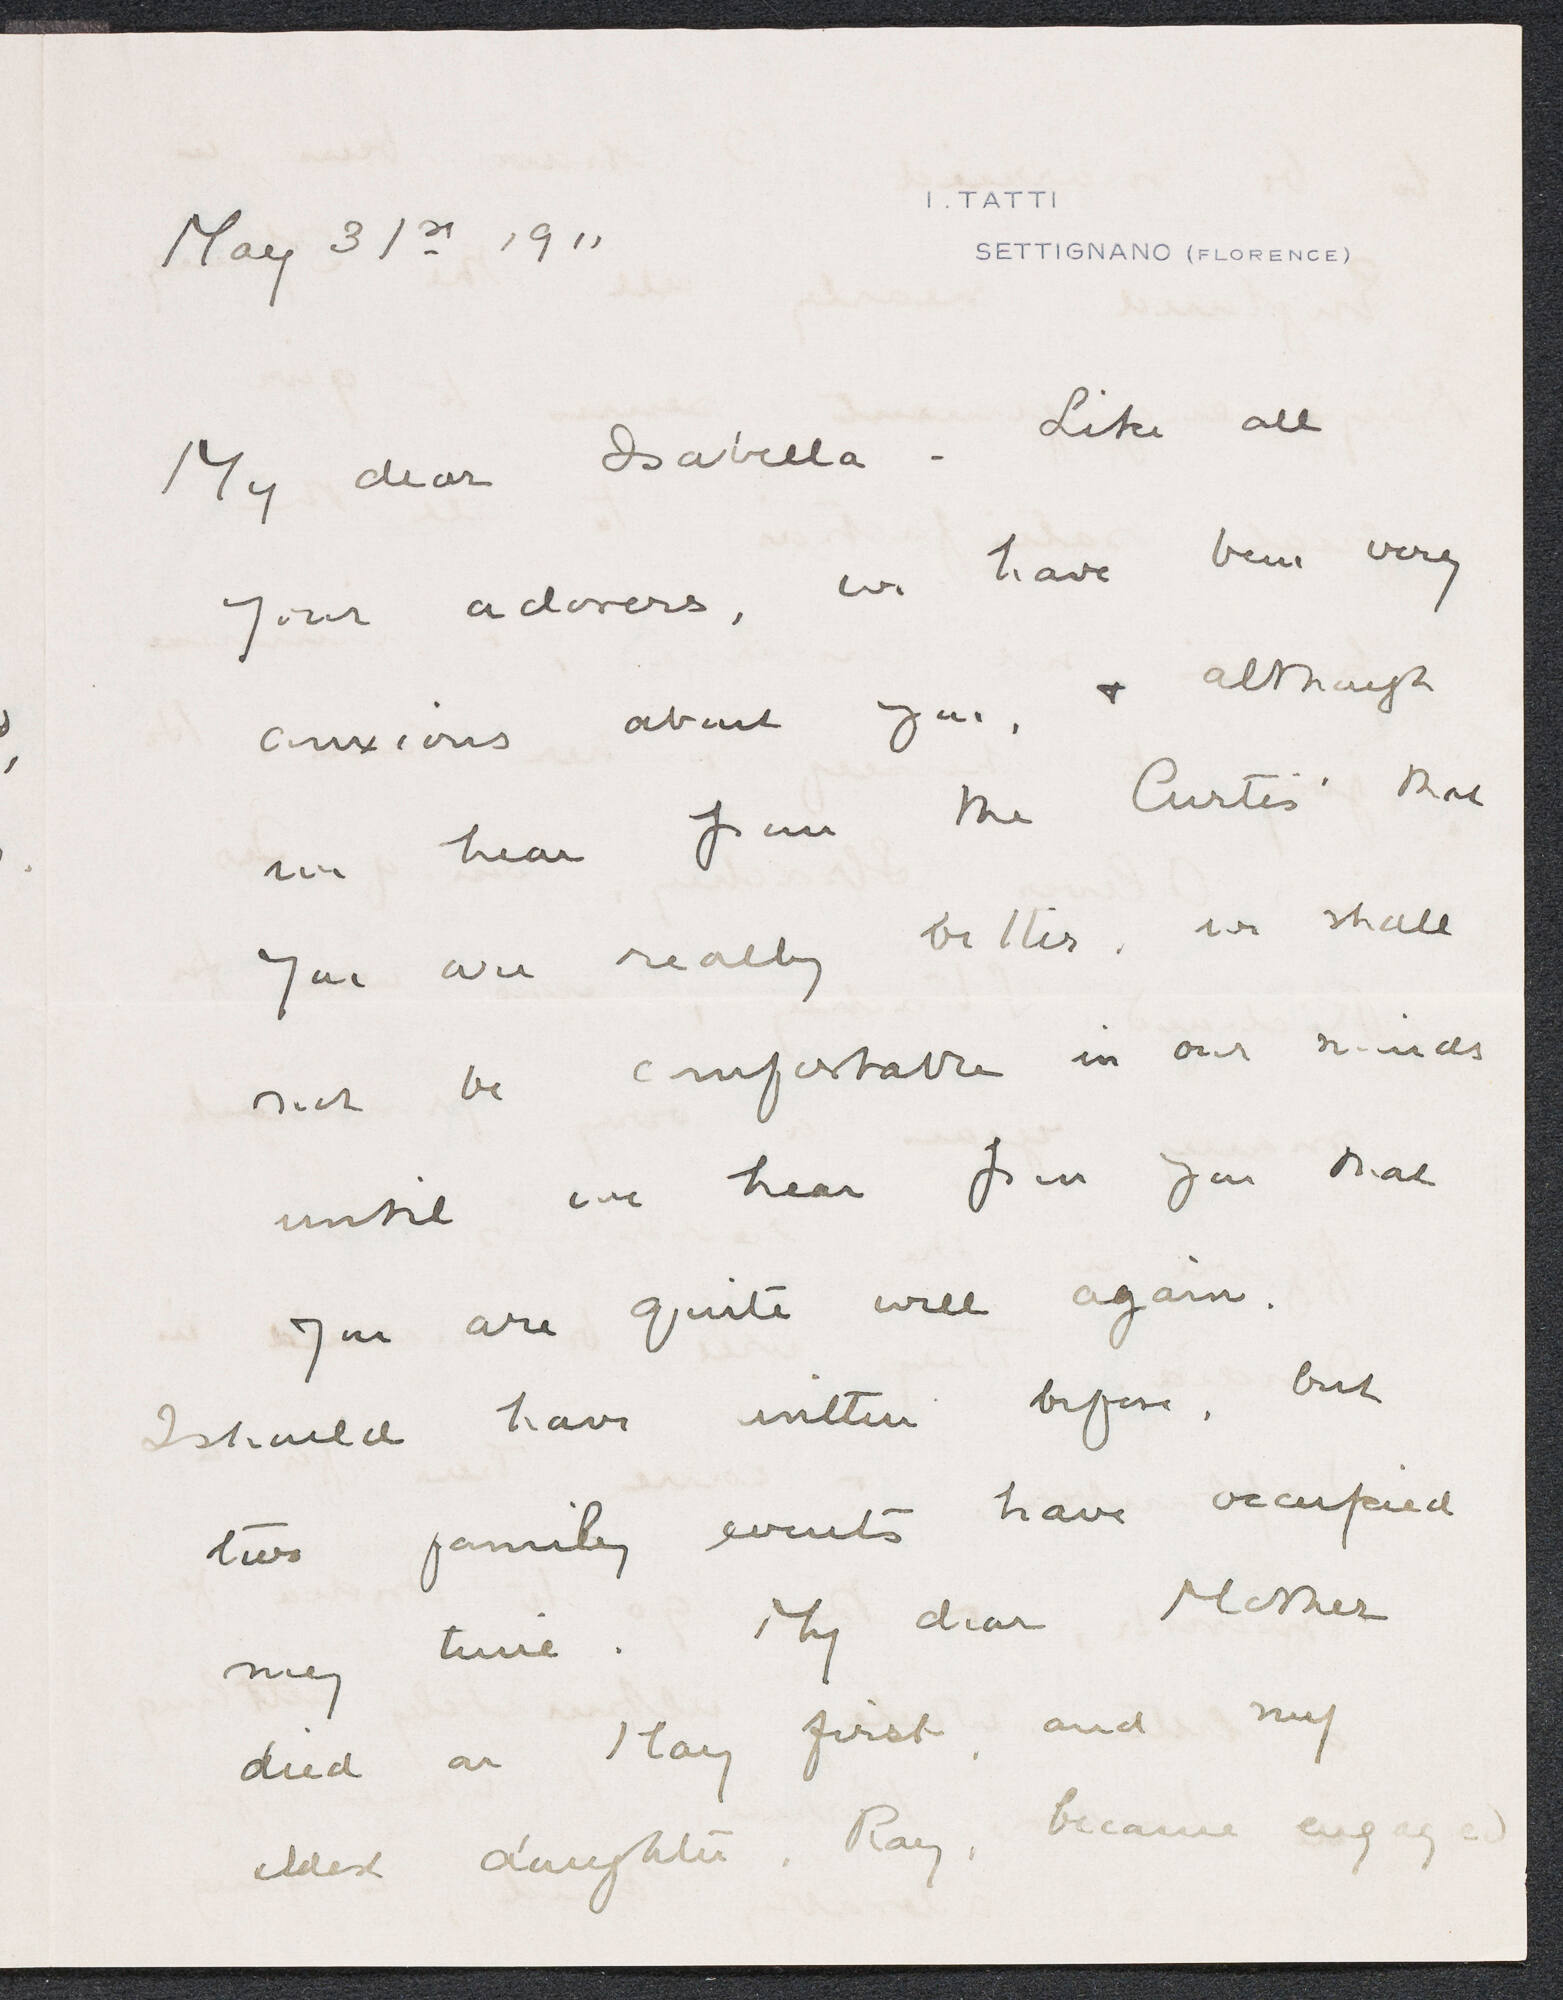 I. TATTI
SETTIGNANO (FLORENCE)
May 31st 1911
My dear Isabella - Like all
your adorers, we have been very
anxious about you, & although
we hear from the Curtis' that
you are really better, we shall
not be comfortable in our minds
until we hear from you that
you are quite well again.
I should have written before, but
two family events have occupied
my time. My dear Mother
died on May first, and my
eldest daughter, Ray, became engaged